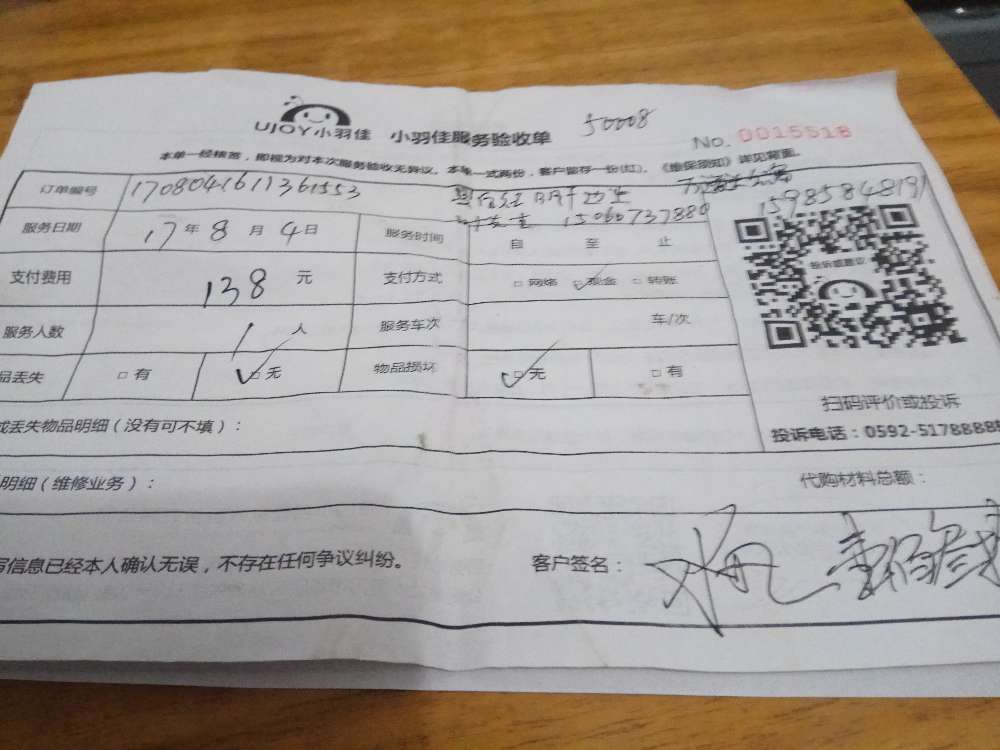 UJOY小羽佳 小羽佳服务验收单 50008
No. 0015518
本单一经核签，即视为对本次服务验收无异议。本单一式两份，客户留存一份(红)。《维保须知》详见背面。
订单编号 1708041611361553
15985848191
15060737880
服务日期 17年 8月 4日 服务时间 自 至 止
投诉或建议
支付费用 138 元 支付方式 □网络 ☑现金 □转账
服务人数 1 人 服务车次 车/次
品丢失 □有 ☑无 物品损坏 ☑无 □有
扫码评价或投诉
或丢失物品明细（没有可不填）：
投诉电话：0592-5178888
明细（维修业务）： 代购材料总额：
写信息已经本人确认无误，不存在任何争议纠纷。 客户签名：